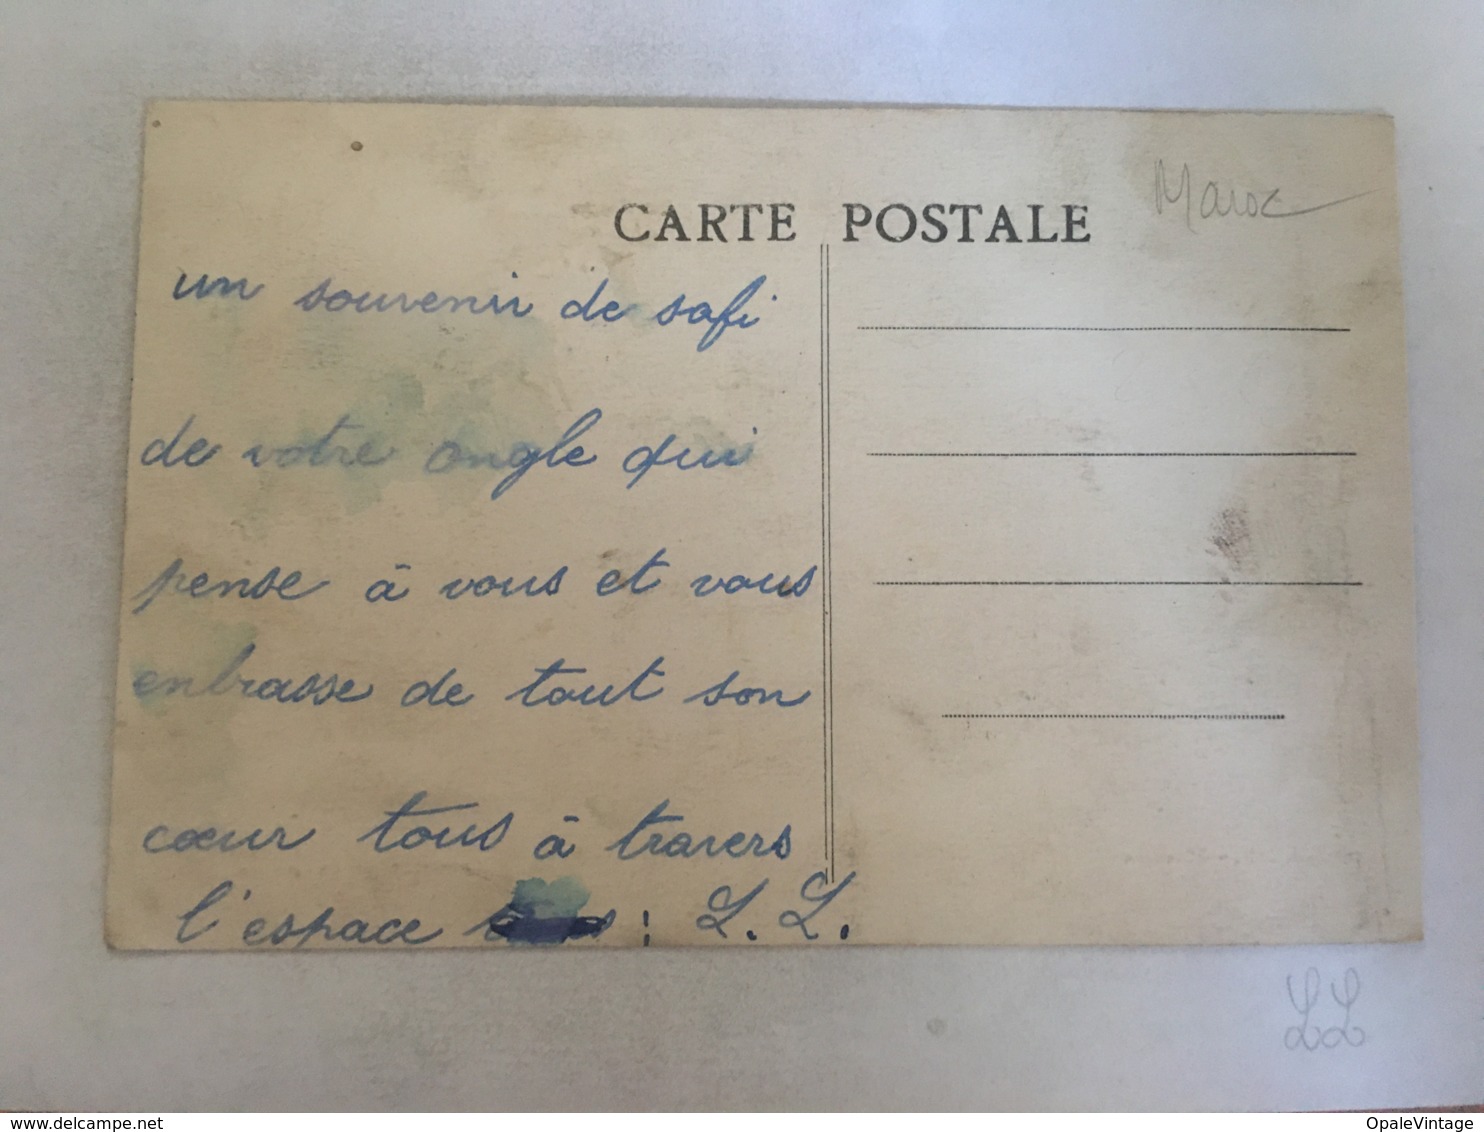 CARTE POSTALE
Maroc
un souvenir de safi
de votre ongle qui
pense à vous et vous
enbrasse de tout son
cœur tous à travers
l'espace : L. L.
LL
delcampe.net
OpaleVintage